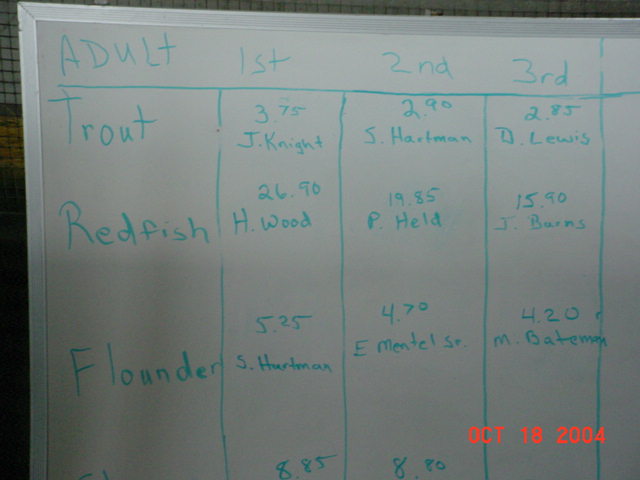 ADULT 1st 2nd 3rd
3.75 2.90 2.85
Trout J. Knight S. Hartman D. Lewis
26.90 19.85 15.90
Redfish H. Wood P. Held J. Burns
5.25 4.70 4.20
Flounder S. Hartman E Mentel Sr. M. Bateman
8.85 8.80
OCT 18 2004